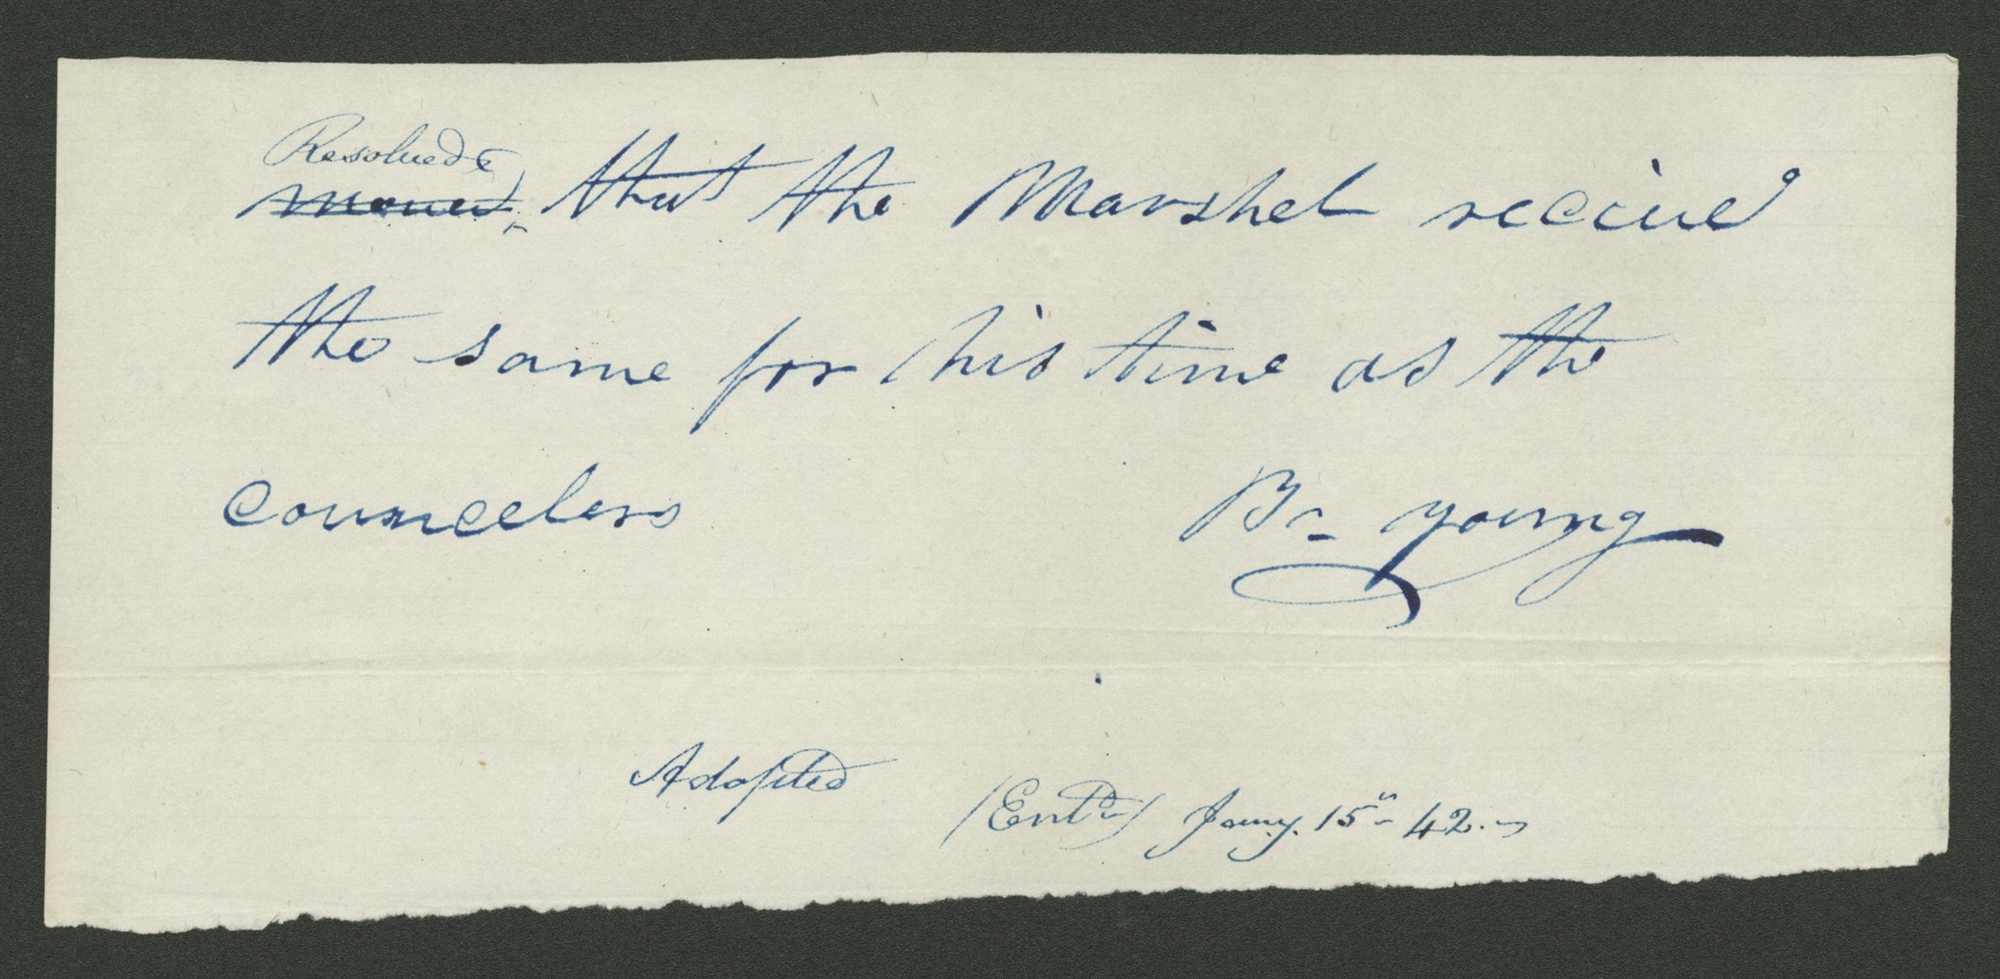 Resolved
moved, that the Marshel recieve
the same for his time as the
councelers B. Young
Adopted
(Entd) Jany. 15th 42.